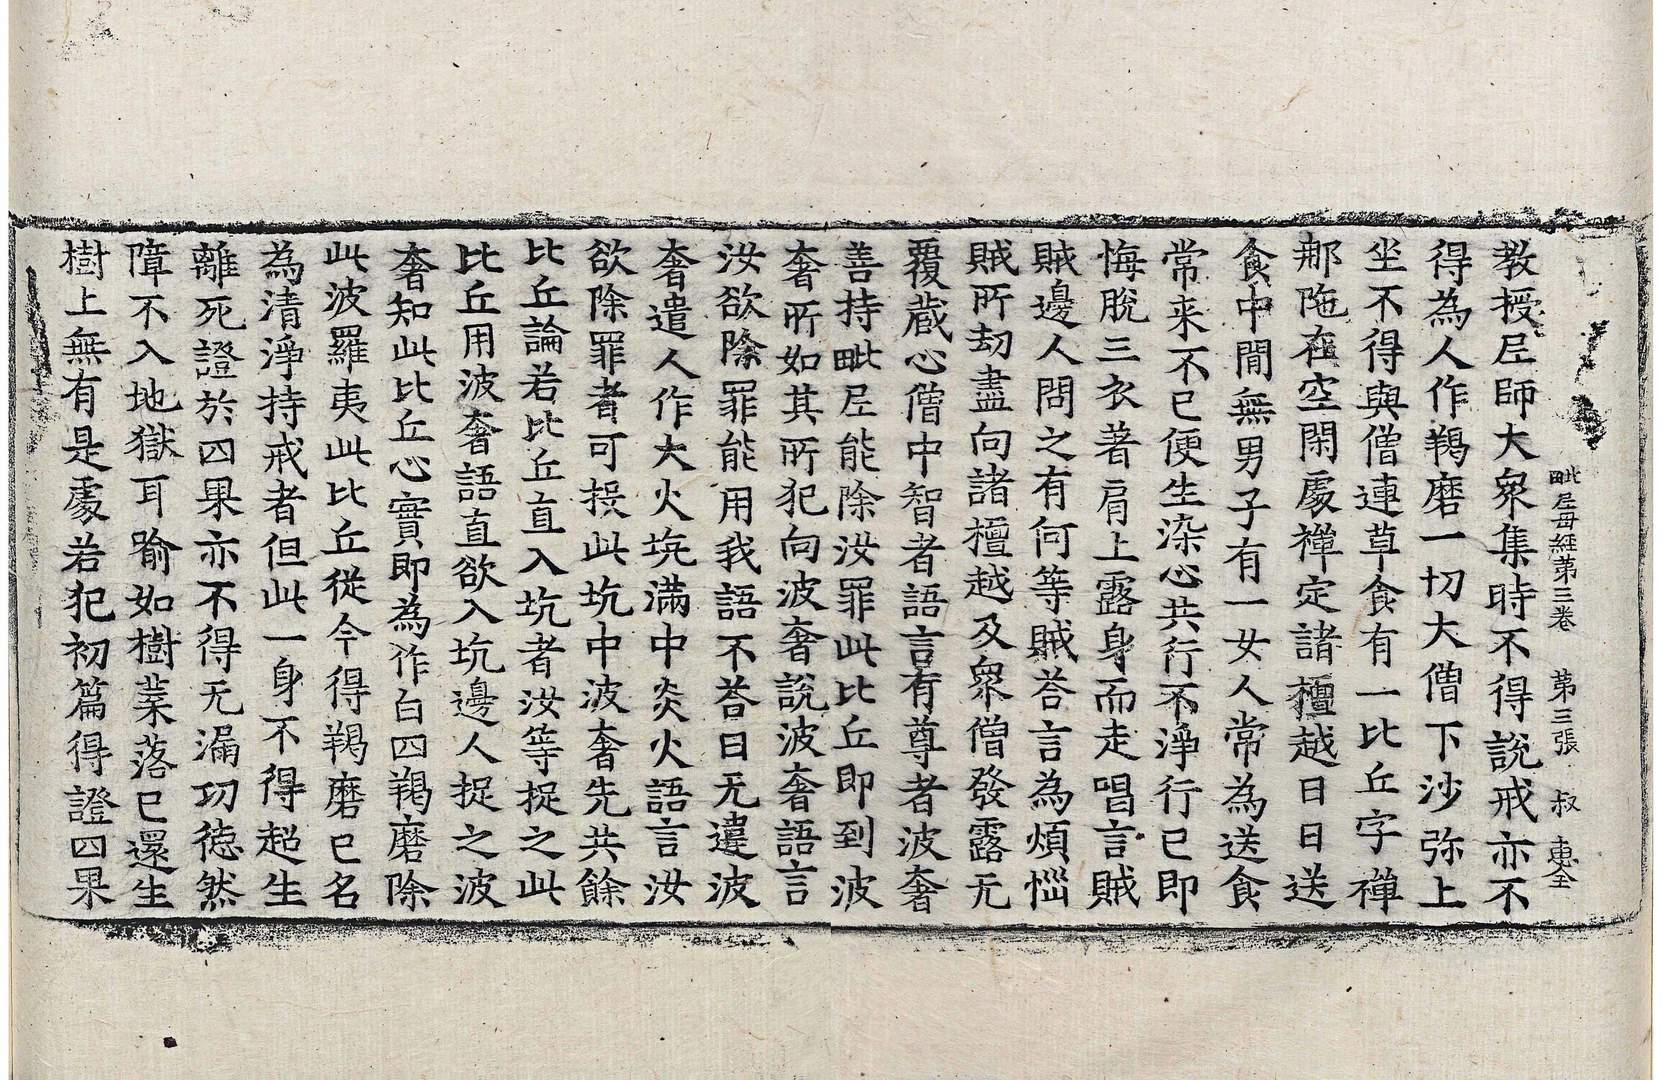 毗尼母經第三卷　第三張　叔　惠全
教授尼師大衆集時不得說戒亦不
得為人作羯磨一切大僧下沙弥上
坐不得與僧連草食有一比丘字禅
那陁在空閑處禅定諸檀越日日送
食中閒無男子有一女人常為送食
常来不已便生染心共行不淨行已即
悔脫三衣著肩上露身而走唱言賊
賊邊人問之有何等賊荅言為煩惱
賊所劫盡向諸檀越及衆僧發露无
覆蔵心僧中智者語言有尊者波奢
善持毗尼能除汝罪此比丘即到波
奢所如其所犯向波奢說波奢語言
汝欲除罪能用我語不荅曰无違波
奢遣人作大火坑滿中炎火語言汝
欲除罪者可投此坑中波奢先共餘
比丘論若比丘直入坑者汝等捉之此
比丘用波奢語直欲入坑邊人捉之波
奢知此比丘心實即為作白四羯磨除
此波羅夷此比丘從今得羯磨已名
為清淨持戒者但此一身不得超生
離死證於四果亦不得无漏功德然
障不入地獄耳喻如樹葉落已還生
樹上無有是處若犯初篇得證四果